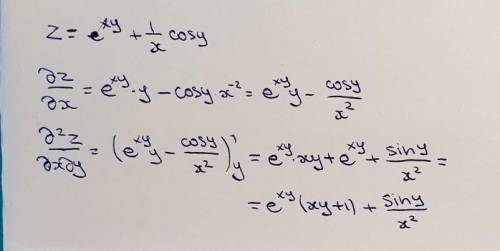 z = e^{xy} + \frac{1}{x} cosy
\frac{∂z}{∂x} = e^{xy} · y − cosy · x^{-2} = e^{xy} y − \frac{cosy}{x^2}
\frac{∂^2 z}{∂x∂y} = (e^{xy} y − \frac{cosy}{x^2})'_y = e^{xy} · xy + e^{xy} + \frac{siny}{x^2} =
= e^{xy} (xy + 1) + \frac{siny}{x^2}